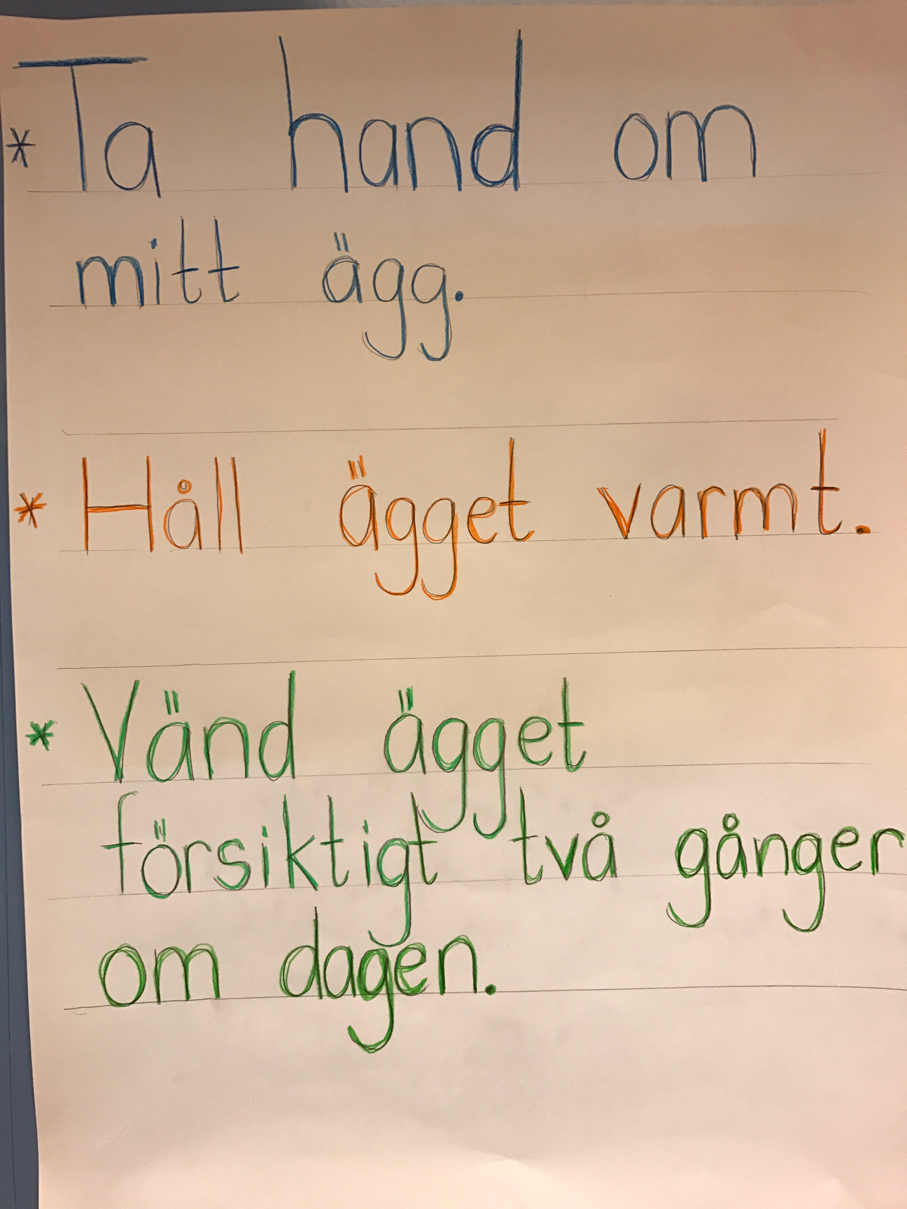 * Ta hand om
mitt ägg.
* Håll ägget varmt.
* Vänd ägget
försiktigt två gånger
om dagen.